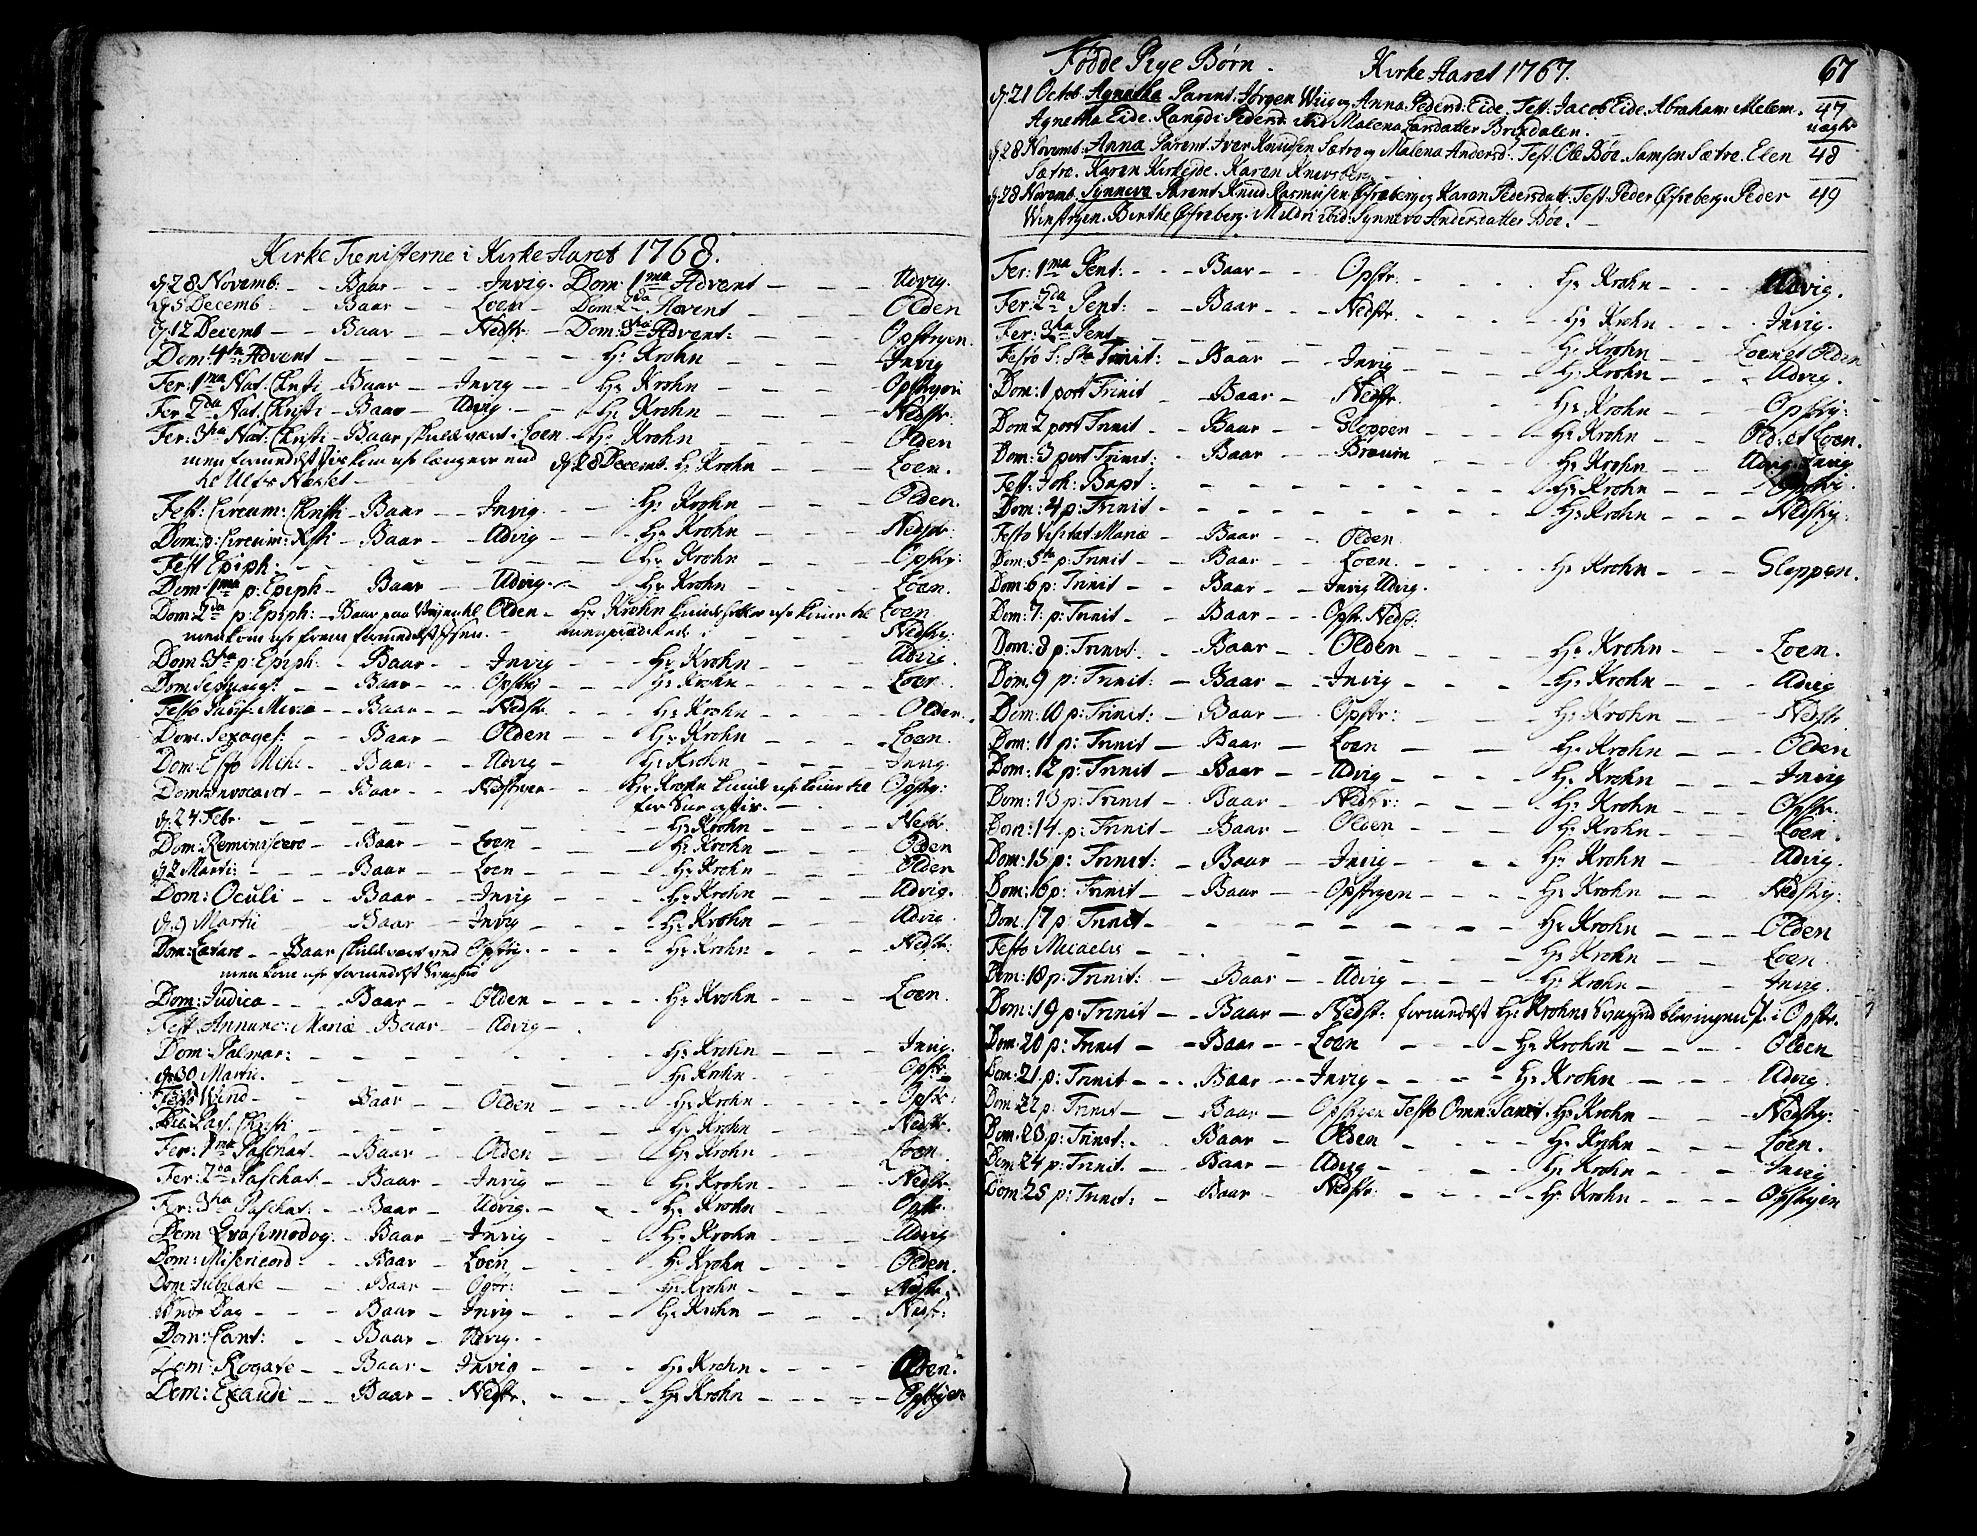 Kirke Tienisterne i Kirke Aaret 1768.
d: 28 Novemb: - - Baar - - - Invig. Dom: 1ma Advent - - - Udvig.
d: 5 Decemb - - Baar - - Loen - Dom: 2da Advent - - - Olden
d: 12 Decemb - - Baar - - Nedstr: - Dom: 3tia Advent: - - - Opstryen.
Dom: 4ta Advent - - - - - Hr Krohn - - - Invig
Fer: 1ma Nat: Christi - Baar - - Invig - - Hr Krohn - - - Opstryen
Fer: 2da Nat: Christi - Baar - Udvig. - - Hr Krohn - - - Nedstr:
Fer: 3tia Nat: Christi - Baar skulde vært i Loen - Hr Krohn - - - Olden
men formedelst kom ikke længere end d: 28 Decemb. Hr Krohn - - Loen.
Fest: Circum: Christi - Baar - - Invig. - - Hr Krohn - - - Olden.
Dom: p: Circum: Xsti - Baar - - Udvig - - Hr Krohn - - - Nedstr:
Fest Epiph: - - - - - Hr Krohn - - - Opstry:
Dom: 1ma p: Epiph - Baar - - Udvig. - - Hr Krohn - - - Loen.
Dom: 2da p: Epiph: - Baar paa Veien til Olden - Hr Krohn kunde ikke komme til Loen
men kom ikke frem formedelst Iisen. - men prædikede i - - Nedstry:
Dom: 3tia p: Epiph: - Baar - - Invig - - Hr Krohn - - - Udvig.
Dom: Septuages: - - Baar - - Opstry - - Hr Krohn - - - Loen
Festo Purif: Mariæ - - Baar - - Nedstr - - Hr Krohn - - - Olden.
Dom: Sexages: - - Baar - - Olden - - Hr Krohn - - - Loen.
Dom: Esto Mihi - - Baar - - Udvig - - Hr Krohn - - - Invig.
Dom: Invocavit - - Baar - - Nedstryen - - Hr Krohn kunde ikke komme til Opstry:
d: 24 Febr. - - - - - Hr Krohn - - - Nestr.
Dom: Reminiscere - - Baar - - Loen - - Hr Krohn - - - Olden
d: 2 Martii: - - Baar - - Loen - - Hr Krohn - - - Olden
Dom: Oculi - - Baar - - Invig - - Hr Krohn - - - Udvig.
d: 9 Martii - - Baar - - Invig - - Hr Krohn - - - Udvig.
Dom: Lætare - - Baar skulde vært ved Opstry. - - Hr Krohn - - - Nedstr:
men kom ikke formedelst Svaghed
Dom: Judica - - - Baar - - Olden - - - Hr Krohn - - - Loen.
Fest Annunc: Mariæ - Baar - - Udvig - -
Dom: Palmar: - - - - - Hr Krohn - - - Invig.
d: 30 Martii. - - - - - Hr Krohn - - - Opstr:
- - Baar - - Olden - - Hr Krohn - - - Opstr:
Die Pass: Christi - - - - - Hr Krohn - - - Nedstr.
Fer: 1ma Paschat - Baar - - Olden - - Hr Krohn - - - Loen
Fer: 2da Paschat: - Baar - - Invig - - Hr Krohn - - - Nedstr.
Fer: 3tia Paschat: - Baar - - Udvig. - - Hr Krohn - - - Opstr.
Dom Qvasimodog. - Baar - - Invig - - Hr Krohn - - - Udvig
Dom: Misericord: - - Baar - - Loen - - Hr Krohn - - - Olden.
Dom Jubilate - - Baar - - Opstr: - - Hr Krohn - - - Nedstr.
Dag - - - Baar - - Invig - - Hr Krohn - - - Nedstr:
Dom: Cant: - - Baar - - Udvig. - -
Dom: Rogate - - Baar - - Invig - - - Hr Krohn - - - Olden.
Dom: Exaudi - - Baar - - Nedstr. - - - Hr Krohn - - - Opstryen
Fødde Pige Børn. Kirke Aaret 1767. 67
d: 21 Octob. Agnetha Parent: Jørgen Wiig og Anna Pedersd: Eide. Test: Jacob Eide. Abraham Melem. 47
Agnetha Eide. Rangdi Pedersd: ibid Malena Larsdatter Brixdalen. uægte
d: 28 Novemb: Anna Parent. Iver Knudsen Sætre og Malena Andersd: Test. Ole Bøe. Samson Sætre. Elen 48
Sætre. Karen Kirkeide. Karen
d: 28 Novemb. Synneve Parent. Knud Rasmussen Øfreberg og Karen Pedersdatt. Test. Peder Øfreberg. Peder 49
Winstryen. Birthe Øfreberg. Mildri ibid: Synneve Andersdatter Bøe. -
Fer: 1ma Pent: - - - Baar - - Opstr. - - - Hr Krohn - - - Udvig.
Fer: 2da Pent: - - Baar - - Nedstr. - - - Hr Krohn - - - Invig.
Fer: 3tia Pent - - - - - Hr Krohn - - - Loen et Olden
Festo S: Stæ Trinit: - - Baar - - Invig - - - Hr Krohn - - - Udvig.
Dom: 1 post Trinit - - Baar - - Nedstr. - - - Hr Krohn - - - Opstry:
Dom 2 post Trinit - - Baar - - Gloppen - - - Hr Krohn - - Old: et Loen.
Dom: 3 post Trinit: - - Baar - - - - - Hr Krohn - - Udvig Invig
Fest: Joh: Bapt: - - - - - Hr Krohn - - Opstr:
Dom: 4 p: Trinit - - - - - Hr Krohn - - - Nedstry:
Festo Visitat: Mariæ - - Baar - - Olden.
Dom: 5te p: Trinit - - Baar - - Loen. - - - Hr Krohn - - - Gloppen.
Dom: 6 p: Trinit - - Baar - - Invig Udvig.
Dom: 7: p: Trinit - - Baar - - Opstr. Nedstr:
Dom: 8 p: Trinit. - - Baar - - Olden - - - Hr Krohn - - - Loen.
Dom. 9 p: Trinit: - - Baar - - Invig - - - Hr Krohn - - - Udvig
Dom: 10 p: Trinit: - - Baar - - Opstr: - - - Hr Krohn - - - Nedstr
Dom: 11 p: Trinit - - Baar - - Loen - - - Hr Krohn - - - Olden
Dom: 12 p: Trinit - - Baar - - Udvig - - - Hr Krohn - - - Invig
Dom: 13 p: Trinit - - Baar - - Nedstr: - - - Hr Krohn - - - Opstr.
Dom: 14. p: Trinit - - Baar - - Olden - - - Hr Krohn - - - Loen.
Dom: 15 p: Trinit: - - Baar - - Invig - - - Hr Krohn - - - Udvig.
Dom: 16 p: Trinit - - Baar - - Opstryen - - - Hr Krohn - - - Nedstry:
Dom: 17 p: Trinit - - - - - Hr Krohn - - - Olden
Festo Micaelis - - - - - Hr Krohn - - - Loen.
Dom: 18 p: Trinit: - - Baar - - Udvig - - - Hr Krohn - - - Invig.
Dom: 19 p: Trinit - - Baar - - Nedstr: formedelst Hr Krohns Svaghed blev ingen i Opstr.
Dom: 20 p: Trinit - - Baar - - Loen - - - Hr Krohn - - - Olden
Dom: 21. p: Trinit - - Baar - - Invig - - - Hr Krohn - - - Udvig.
Dom: 22 p: Trinit - - Baar - Opstryen Festo Omn: Sanct. Hr Krohn - - - Nedstry:
Dom: 23 p: Trinit: - - Baar - - Olden - - - Hr Krohn - - - Loen.
Dom: 24 p: Trinit. - - Baar - - Udvig - - - Hr Krohn - - - Invig
Dom: 25 p: Trinit: - - Baar - - Nedstr: - - - Hr Krohn - - - Opstryen